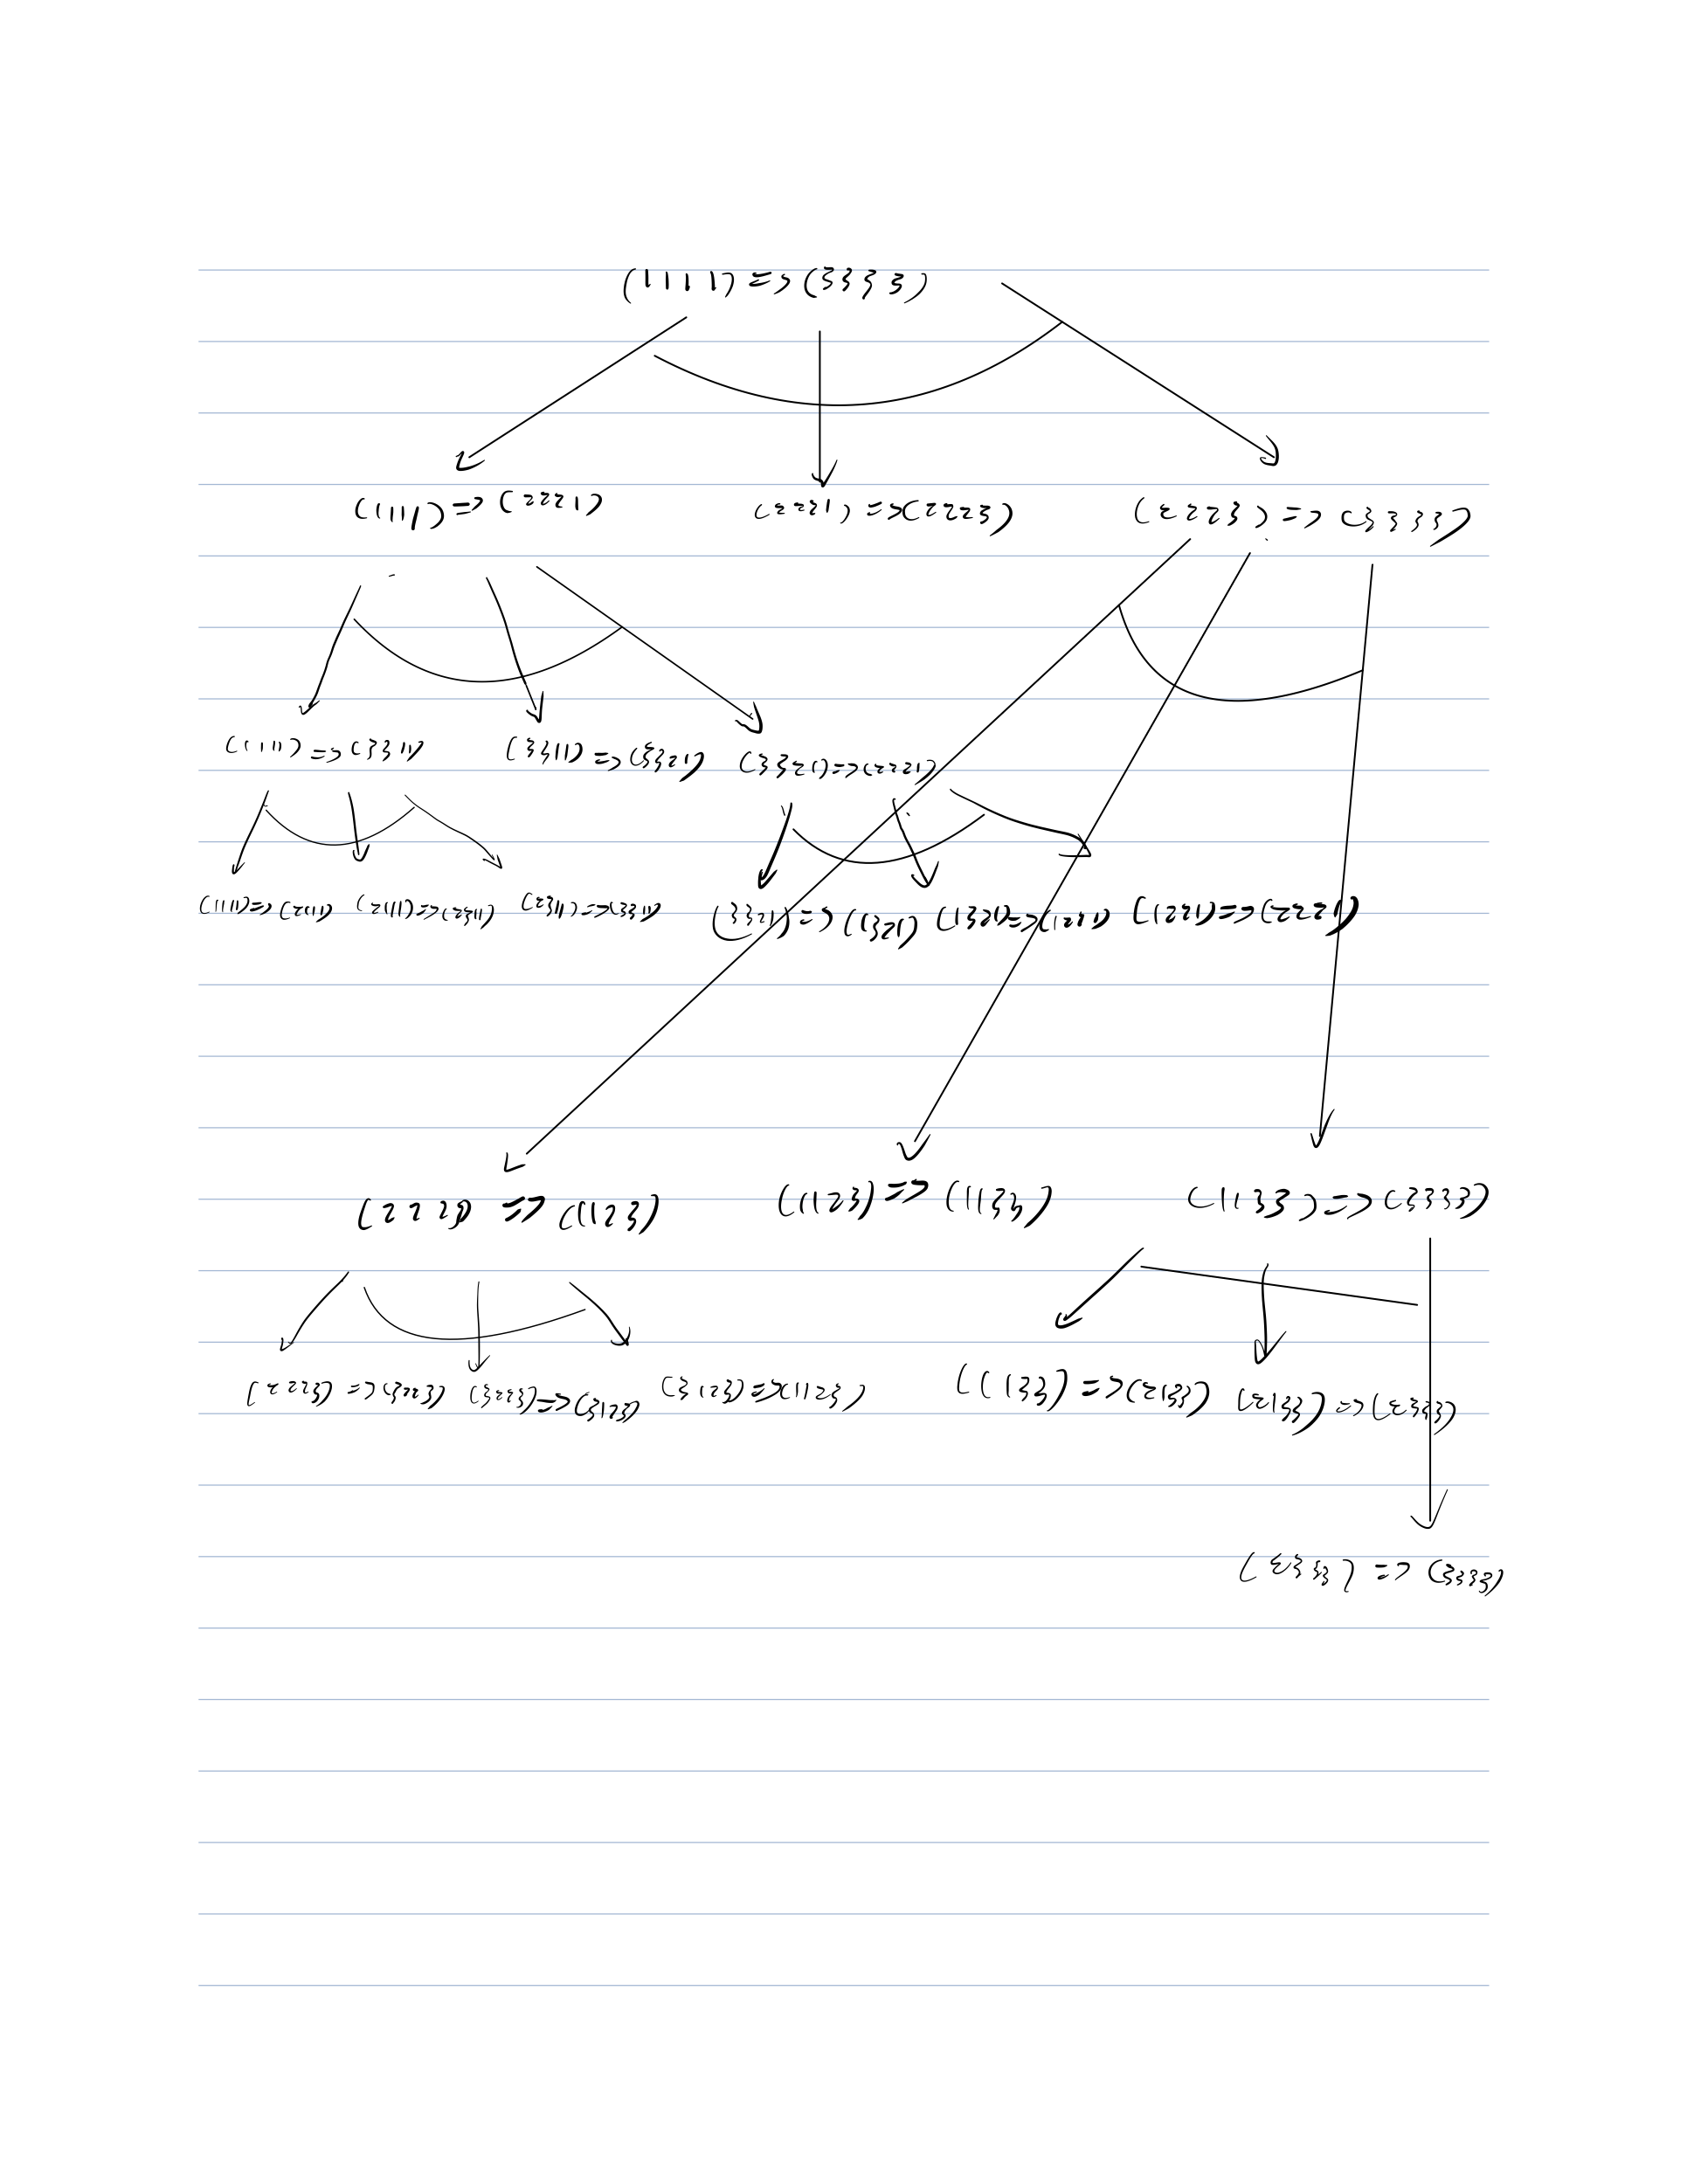 (1111) => (3333)
(1111) => (2221) (2221) => (2223) (2223) => (3333)
(1111) => (3311) (3311) => (3321) (3321) => (2221)
(1111) => (2111) (2111) => (2311) (2311) => (3311) (3321) => (1321) (1321) => (1221) (1221) => (2221)
(2223) => (1123) (1123) => (1133) (1133) => (3333)
(2223) => (3223) (3223) => (3123) (3123) => (1123) (1133) => (2133) (2133) => (2333)
(2333) => (3333)